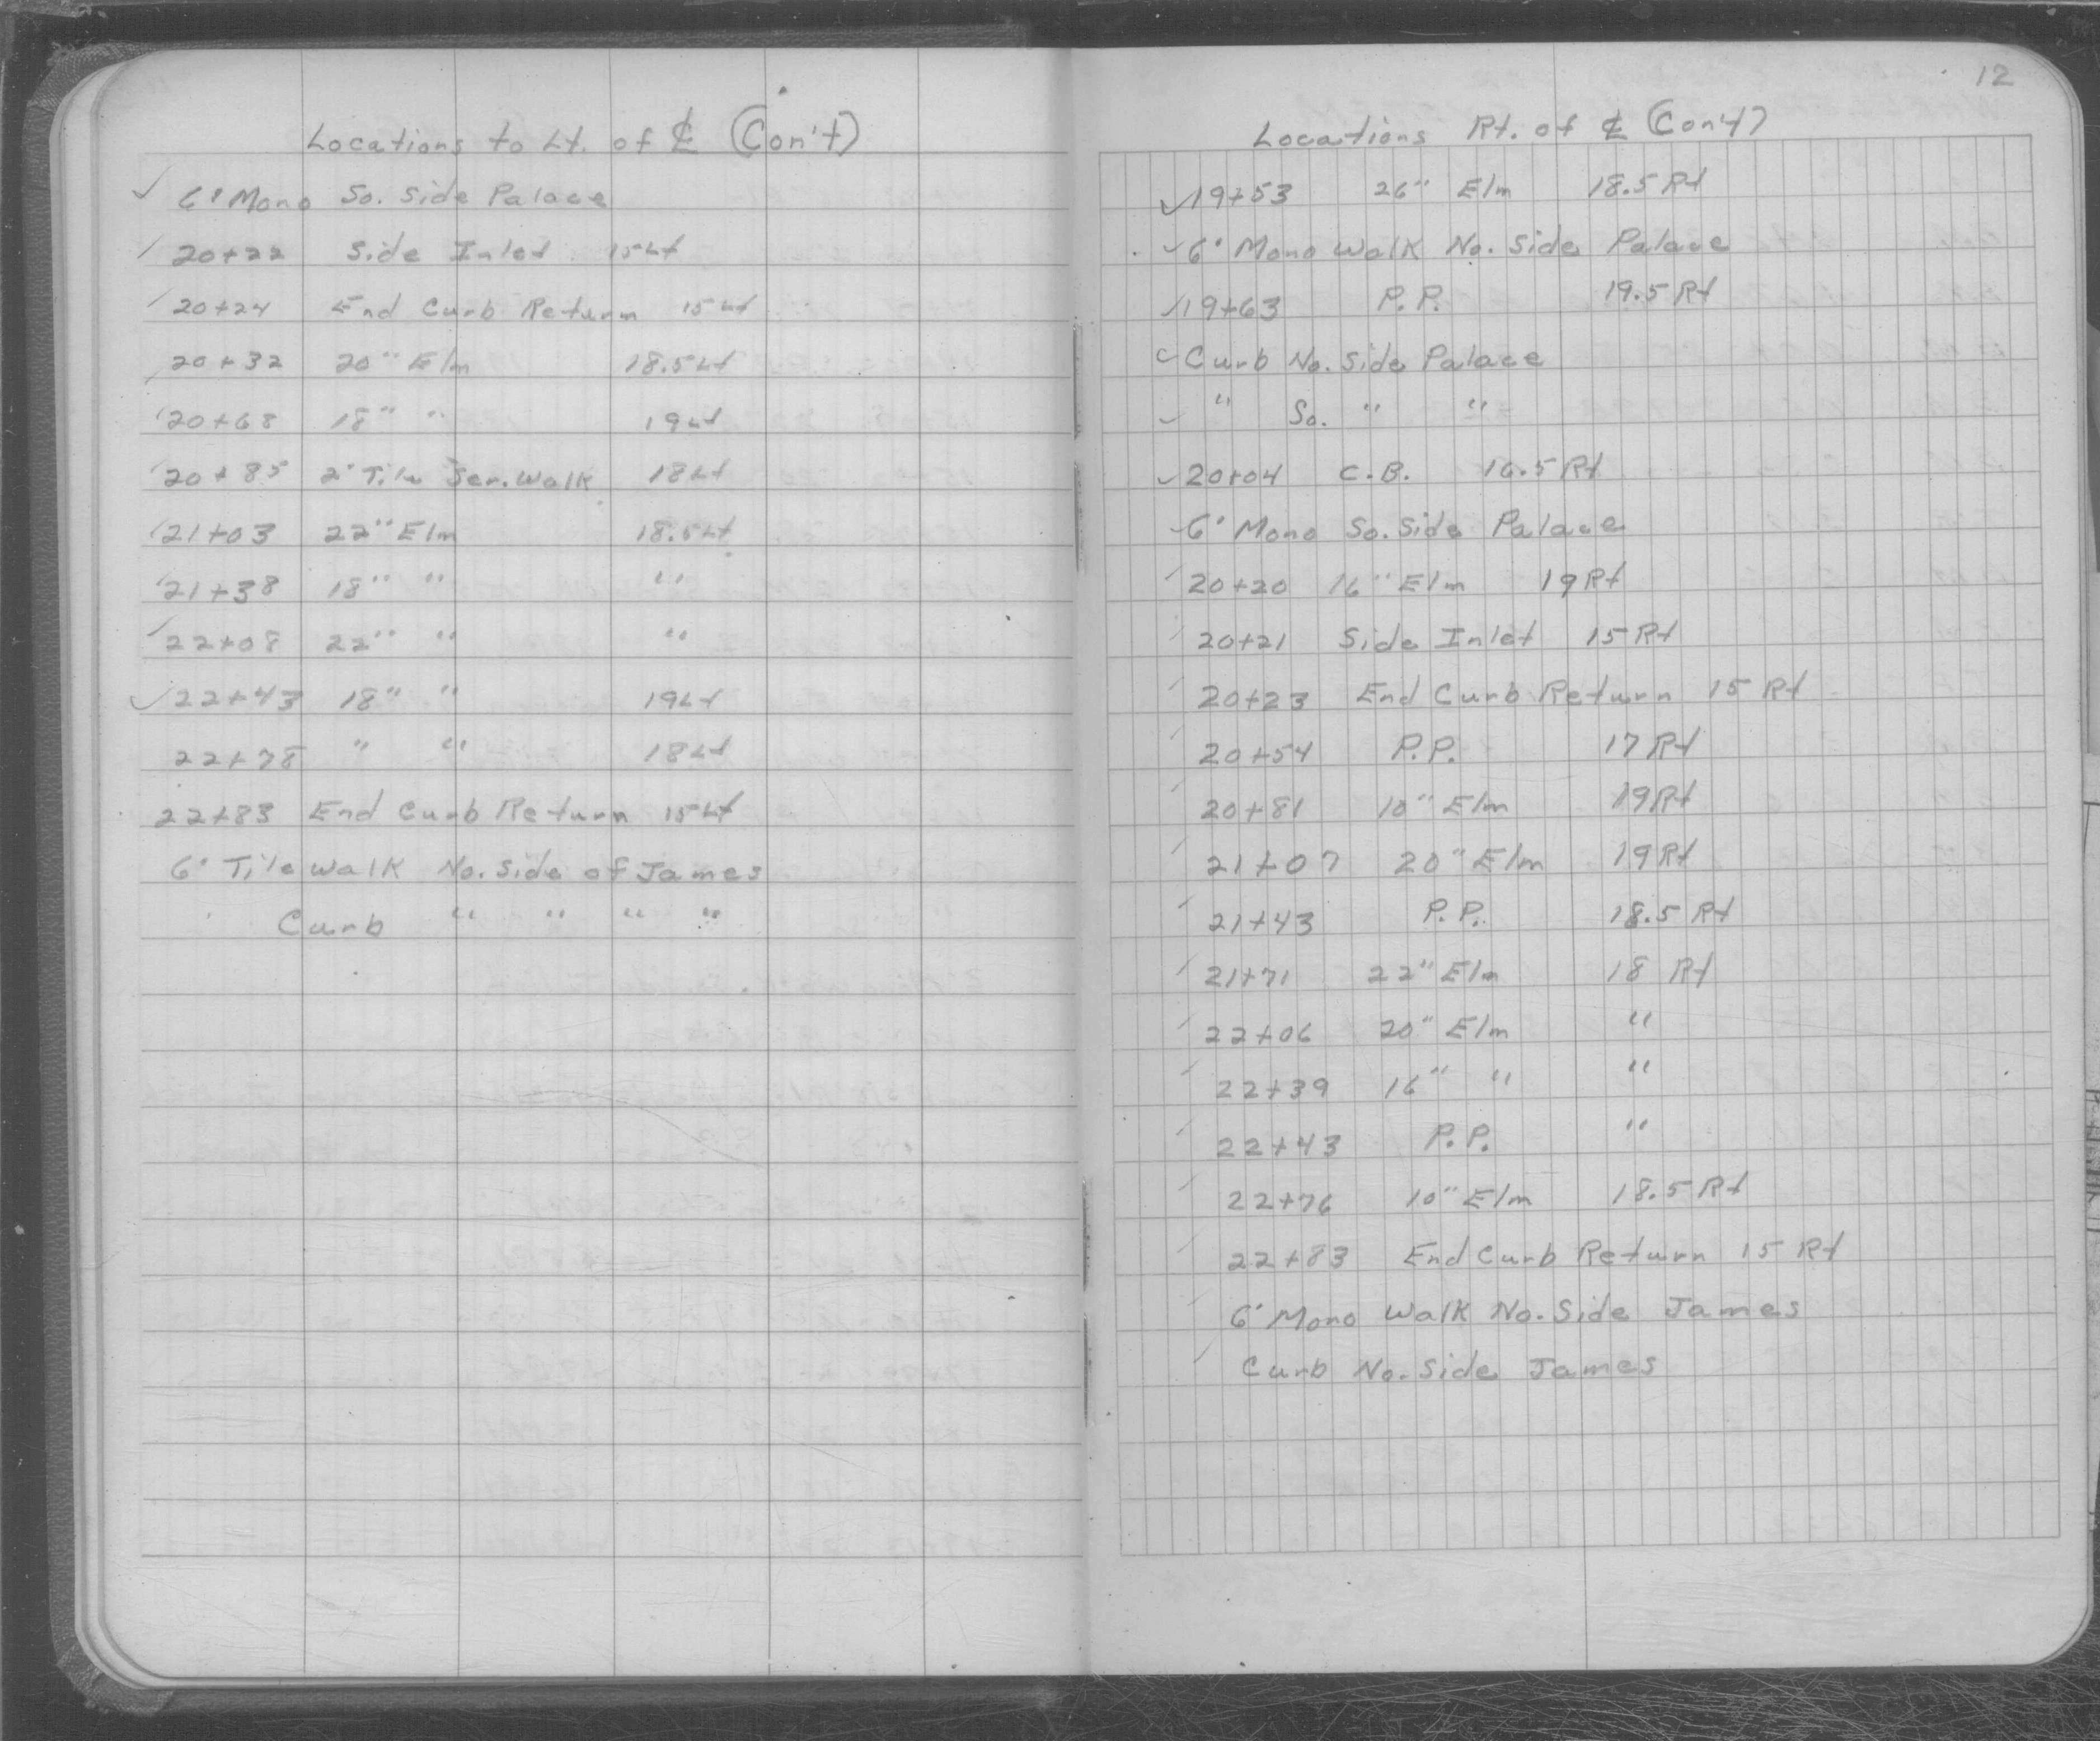 Locations to Lt. of ℄ (Con't)
✓ 6' Mono So. Side Palace
✓ 20+22 Side Inlet 15 Lt
✓ 20+24 End Curb Return 15 Lt
✓ 20+32 20" Elm 18.5 Lt
✓ 20+68 18" " 19 Lt
✓ 20+85 2' Tile Ser. Walk 18 Lt
✓ 21+03 22" Elm 18.5 Lt
✓ 21+38 18" " "
✓ 22+08 22" " "
✓ 22+43 18" " 19 Lt
22+78 " " 18 Lt
22+83 End Curb Return 15 Lt
6' Tile Walk No. Side of James
Curb " " " "
12
Locations Rt. of ℄ (Con't)
✓ 19+53 26" Elm 18.5 Rt
✓ 6' Mono Walk No. Side Palace
✓ 19+63 P.P. 19.5 Rt
✓ Curb No. Side Palace
✓ " So. " "
✓ 20+04 C.B. 16.5 Rt
✓ 6' Mono So. Side Palace
✓ 20+20 16" Elm 19 Rt
✓ 20+21 Side Inlet 15 Rt
✓ 20+23 End Curb Return 15 Rt
✓ 20+54 P.P. 17 Rt
✓ 20+81 10" Elm 19 Rt
✓ 21+07 20" Elm 19 Rt
✓ 21+43 P.P. 18.5 Rt
✓ 21+71 22" Elm 18 Rt
✓ 22+06 20" Elm "
✓ 22+39 16" " "
✓ 22+43 P.P. "
✓ 22+76 10" Elm 18.5 Rt
✓ 22+83 End Curb Return 15 Rt
✓ 6' Mono Walk No. Side James
✓ Curb No. Side James